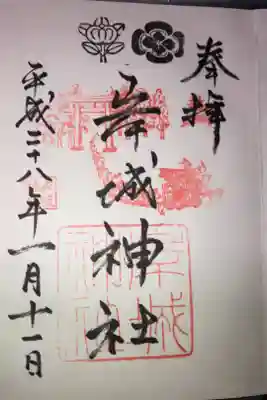 奉拝
岸城神社
岸城
神社
平成二十八年一月十一日